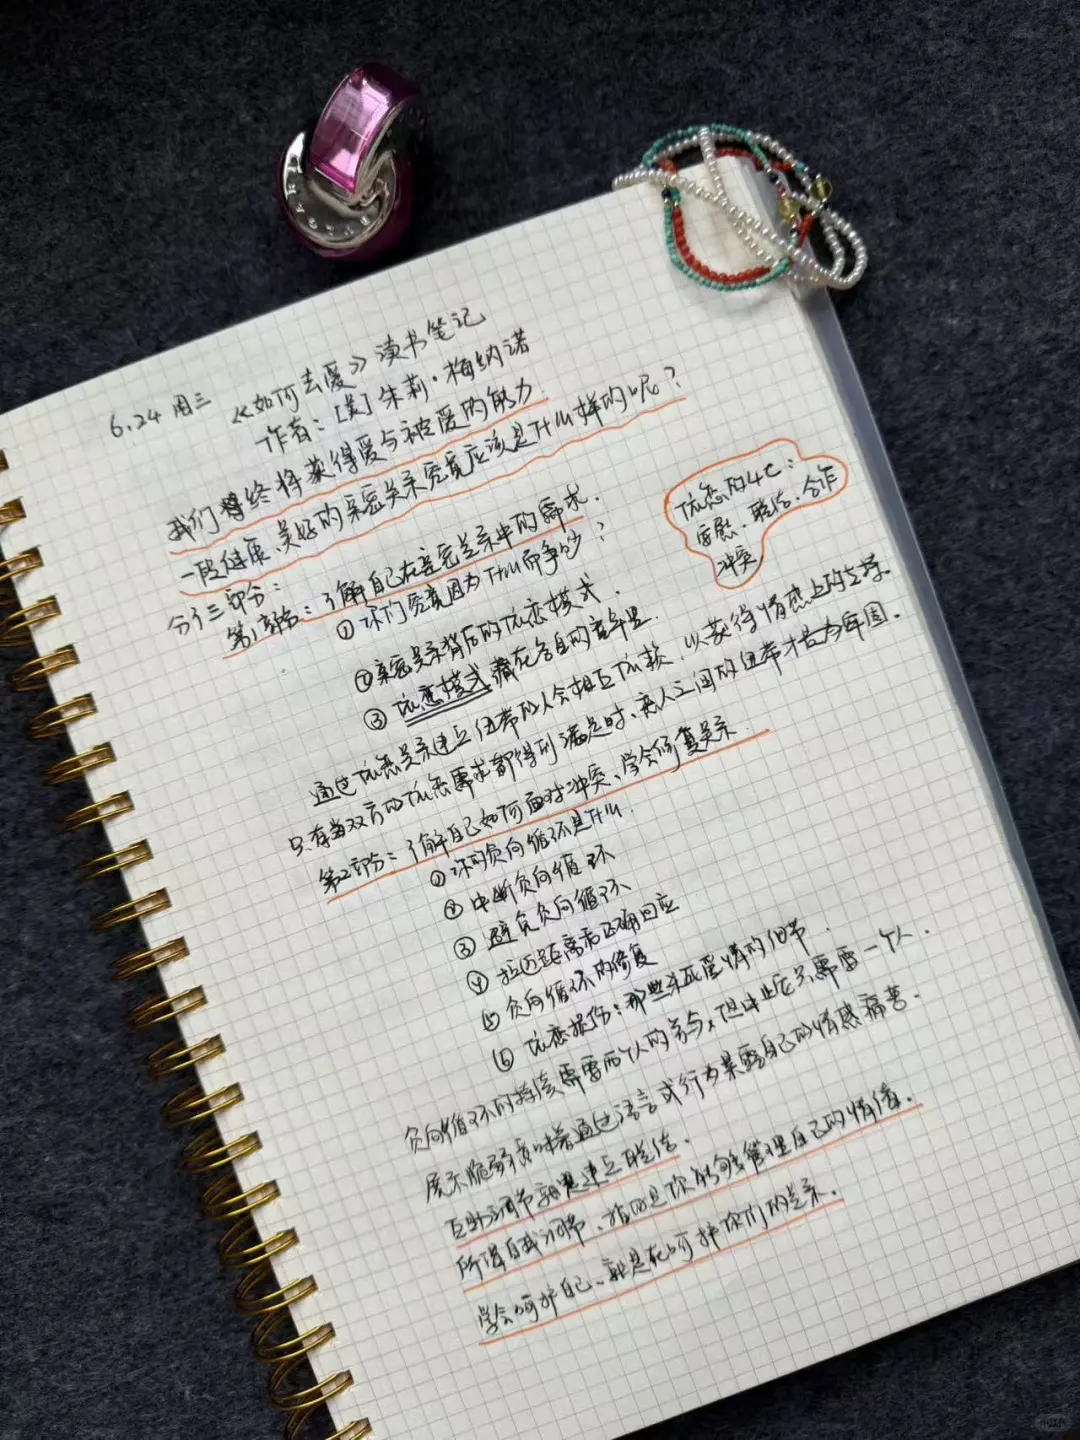 6.24 周三 《如何去爱》读书笔记
作者：[美] 朱莉·梅纳诺
我们终将获得爱与被爱的能力.
一段健康、美好的亲密关系究竟应该是什么样的呢？
分了三部分：
第1部分：了解自己在亲密关系中的需求.
① 你们究竟因为什么而争吵？
② 亲密关系背后的依恋模式.
③ 依恋模式藏在各自的童年里.
依恋的4C：
安慰、联结、合作
冲突
通过依恋关系建立纽带的人会相互依赖，以获得情感上的支持.
只有当双方的依恋需求都得到满足时、恋人之间的纽带才会牢固。
第2部分：了解自己如何面对冲突、学会修复关系.
① 你的负向循环是什么.
② 中断负向循环
③ 避免负向循环
④ 拉近距离和正确回应
⑤ 负向循环的修复
⑥ 依恋损伤：那些杀死爱情的细节.
负向循环的持续需要两个人的参与，但中止它只需要一个人.
展示脆弱意味着通过语言或行为暴露自己的情感痛苦.
互助调节就是建立联结.
所谓自我调节、指的是你能够管理自己的情绪.
学会呵护自己、就是在呵护你们的关系.
小红书